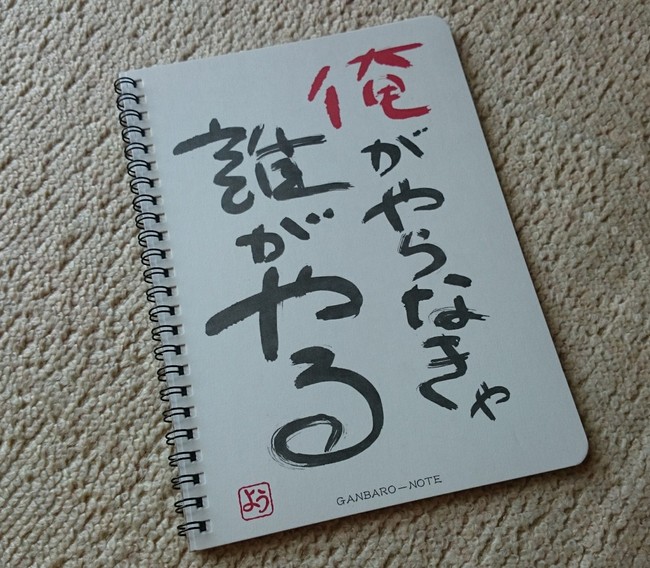 俺がやらなきゃ
誰がやる
よう
GANBARO-NOTE